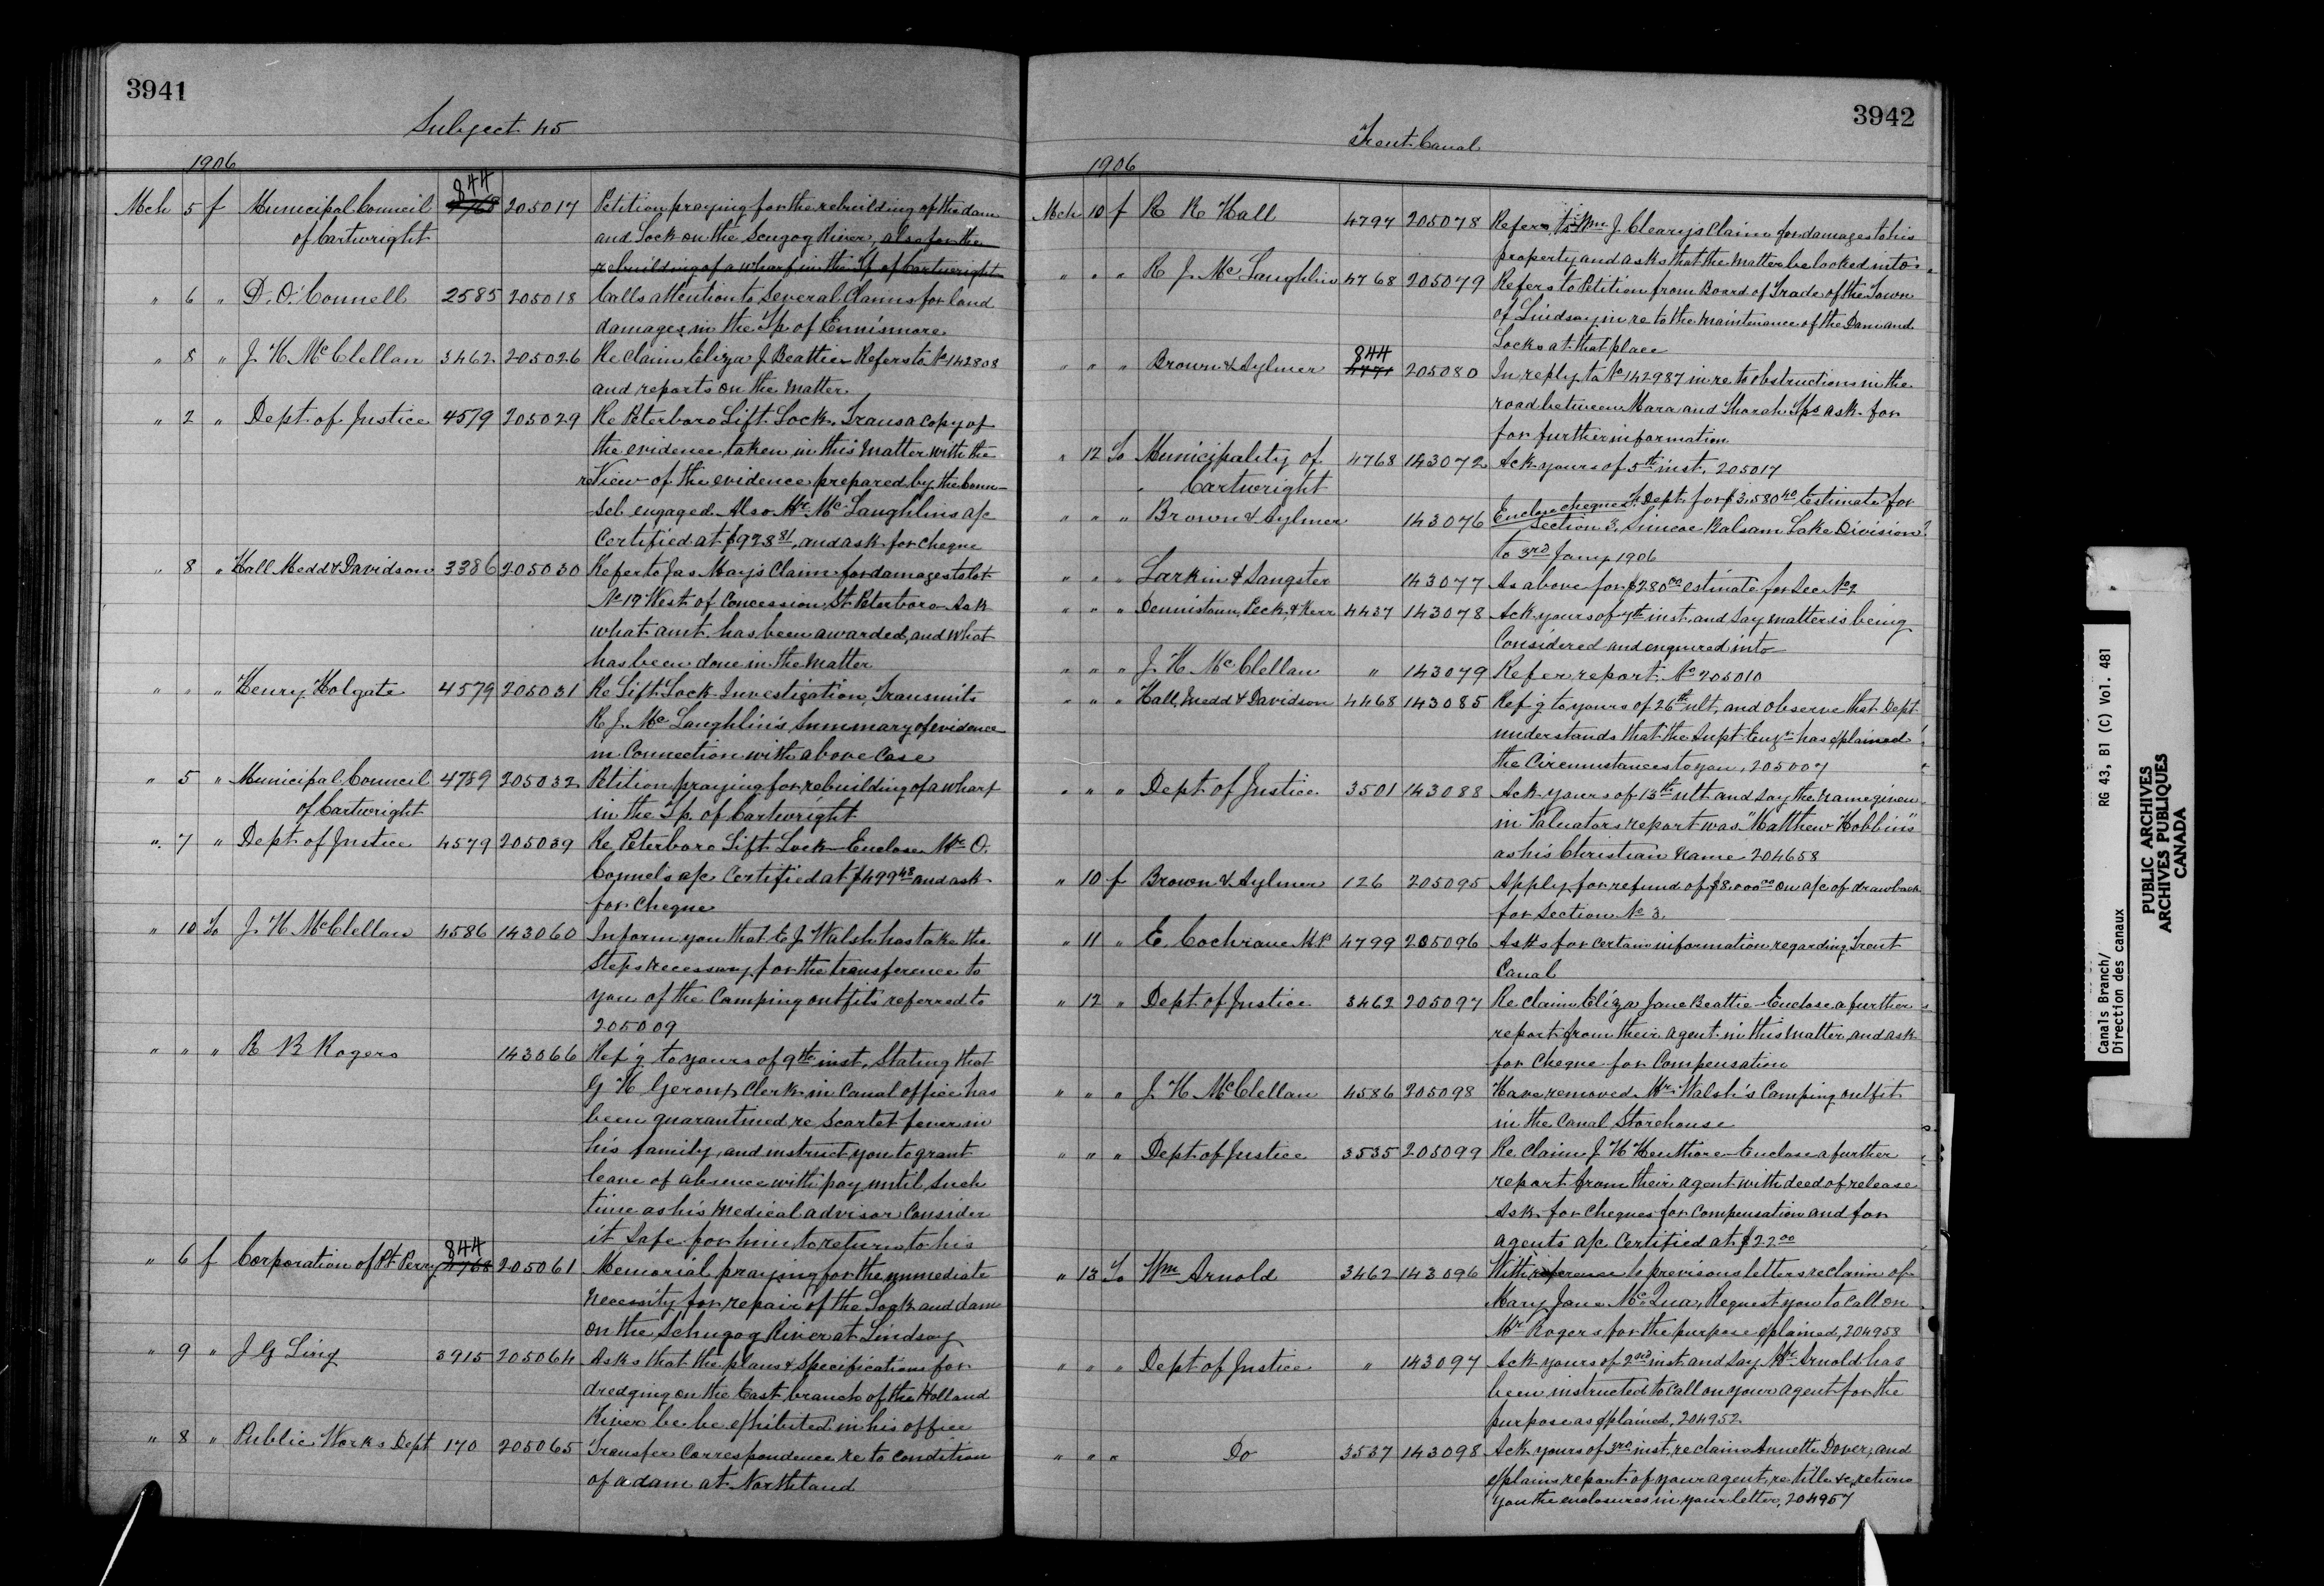 3941
Subject 45
1906
Mch 5 f Municipal Council 844 4768 205017 Petition praying for the rebuilding of the dam
of Cartwright and Lock on the Scugog River, also for the
rebuilding of a wharf in the Tp of Cartwright
" 6 " D. O'Connell 2585 205018 Calls attention to several Claims for land
damages in the Tp. of Ennismore
" 8 " J. H. McClellan 3462 205026 Re Claim Eliza J Beattie Refers to No 142808
and reports on the matter.
" 2 " Dept. of Justice 4579 205029 Re Peterboro Lift Lock. Trans a copy of
the evidence taken in this matter with the
review of the evidence prepared by the Coun-
sel engaged. Also Mr. McLaughlins a/c
Certified at $973.81, and ask for cheque
" 8 " Hall Medd & Davidson 3386 205030 Refer to Jas May's Claim for damages to lot
No 19 West of Concession St Peterboro Ask
what amt. has been awarded, and what
has been done in the matter
" " " Henry Holgate 4579 205031 Re Lift Lock Investigation, Transmits
R. J. McLaughlin's Summary of evidence
in Connection with above Case
" 5 " Municipal Council 4789 205032 Petition praying for rebuilding of a wharf
of Cartwright in the Tp. of Cartwright
" 7 " Dept of Justice 4579 205039 Re Peterboro Lift Lock Enclose Mr O.
Connels a/c Certified at $499.48 and ask
for cheque
" 10 To J. H. McClellan 4586 143060 Inform you that E J Walsh has take the
steps necessary for the transference to
you of the Camping outfits referred to
205009
" " " R B Rogers 143066 Ref'g to yours of 9th inst, Stating that
G H Geroux, Clerk in Canal office has
been quarantined re Scarlet fever in
his family, and instruct you to grant
leave of absence with pay until such
time as his medical advisor Consider
it Safe for him to return to his
" 6 f Corporation of Pt Perry 844 4768 205061 Memorial praying for the immediate
necessity for repair of the Lock and dam
on the Schugog River at Lindsay
" 9 " J G Sing 3915 205064 Asks that the plans & Specifications for
dredging on the East branch of the Holland
River be be exhibited in his office
" 8 " Public Works Dept 170 205065 Transfer Correspondence re to condition
of a dam at Northland
3942
Trent Canal
1906
Mch 10 f R R Hall 4797 205078 Refers to Wm. J. Cleary's Claim for damages to his
property and asks that the matter be looked into
" " " R J. McLaughlin 4768 205079 Refers to Petition from Board of Trade of the Town
of Lindsay in re to the maintenance of the Dam and
Locks at that place
" " " Brown & Aylmer 844 4771 205080 In reply to No 142987 in re to obstructions in the
road between Mara and Thorah Tps ask for
for further information
" 12 To Municipality of 4768 143072 Ack yours of 5th inst. 205017
Cartwright
" " " Brown & Aylmer 143076 Enclose cheque of Dept. for $3,580.40 Estimate for
Section 3, Simcoe Balsam Lake Division
to 3rd Jany 1906
" " " Larkin & Sangster 143077 As above for $280.00 estimate for Sec No 2
" " " Dennistoun, Peck, & Kerr 4437 143078 Ack yours of 7th inst. and say matter is being
Considered and enquired into
" " " J. H. McClellan " 143079 Refer, report. No 205010
" " " Hall, Medd & Davidson 4468 143085 Ref'g to yours of 26th ult, and observe that Dept
understands that the Supt Engr has explained
the Circumstances to you, 205007
" " " Dept. of Justice. 3501 143088 Ack yours of 13th ult and say the name given
in Valuators report was "Matthew Hobbins"
as his Christian name 204658
" 10 f Brown & Aylmer 126 205095 Apply for refund of $8,000.00 on a/c of drawback
for Section No 3.
" 11 " E. Cochrane M.P. 4799 205096 Asks for certain information regarding Trent
Canal
" 12 " Dept. of Justice 3462 205097 Re Claim Eliza Jane Beattie Enclose a further
report from their agent in this matter, and ask
for Cheque for Compensation
" " " J. H. McClellan 4586 205098 Have removed Mr. Walsh's Camping outfit
in the Canal Storehouse
" " " Dept. of Justice 3535 205099 Re Claim J H Henthore Enclose a further
report from their agent with deed of release
Ask for Cheques for Compensation and for
agents a/c Certified at $22.00
" 13 To Wm Arnold 3462 143096 With reference to previous letters re claim of
Mary Jane McQua, Request you to call on
Mr Rogers for the purpose explained, 204958
" " " Dept of Justice " 143097 Ack yours of 2nd inst and say Mr. Arnold has
been instructed to call on your agent for the
purpose as explained, 204952.
" " " Do 3537 143098 Ack yours of 3rd inst, re claim Annette Dover, and
explains report of your agent, re title &c, return
you the enclosures in your letter, 204957
Canals Branch/
Direction des canaux
RG 43, B1 (C) Vol. 481
PUBLIC ARCHIVES
ARCHIVES PUBLIQUES
CANADA